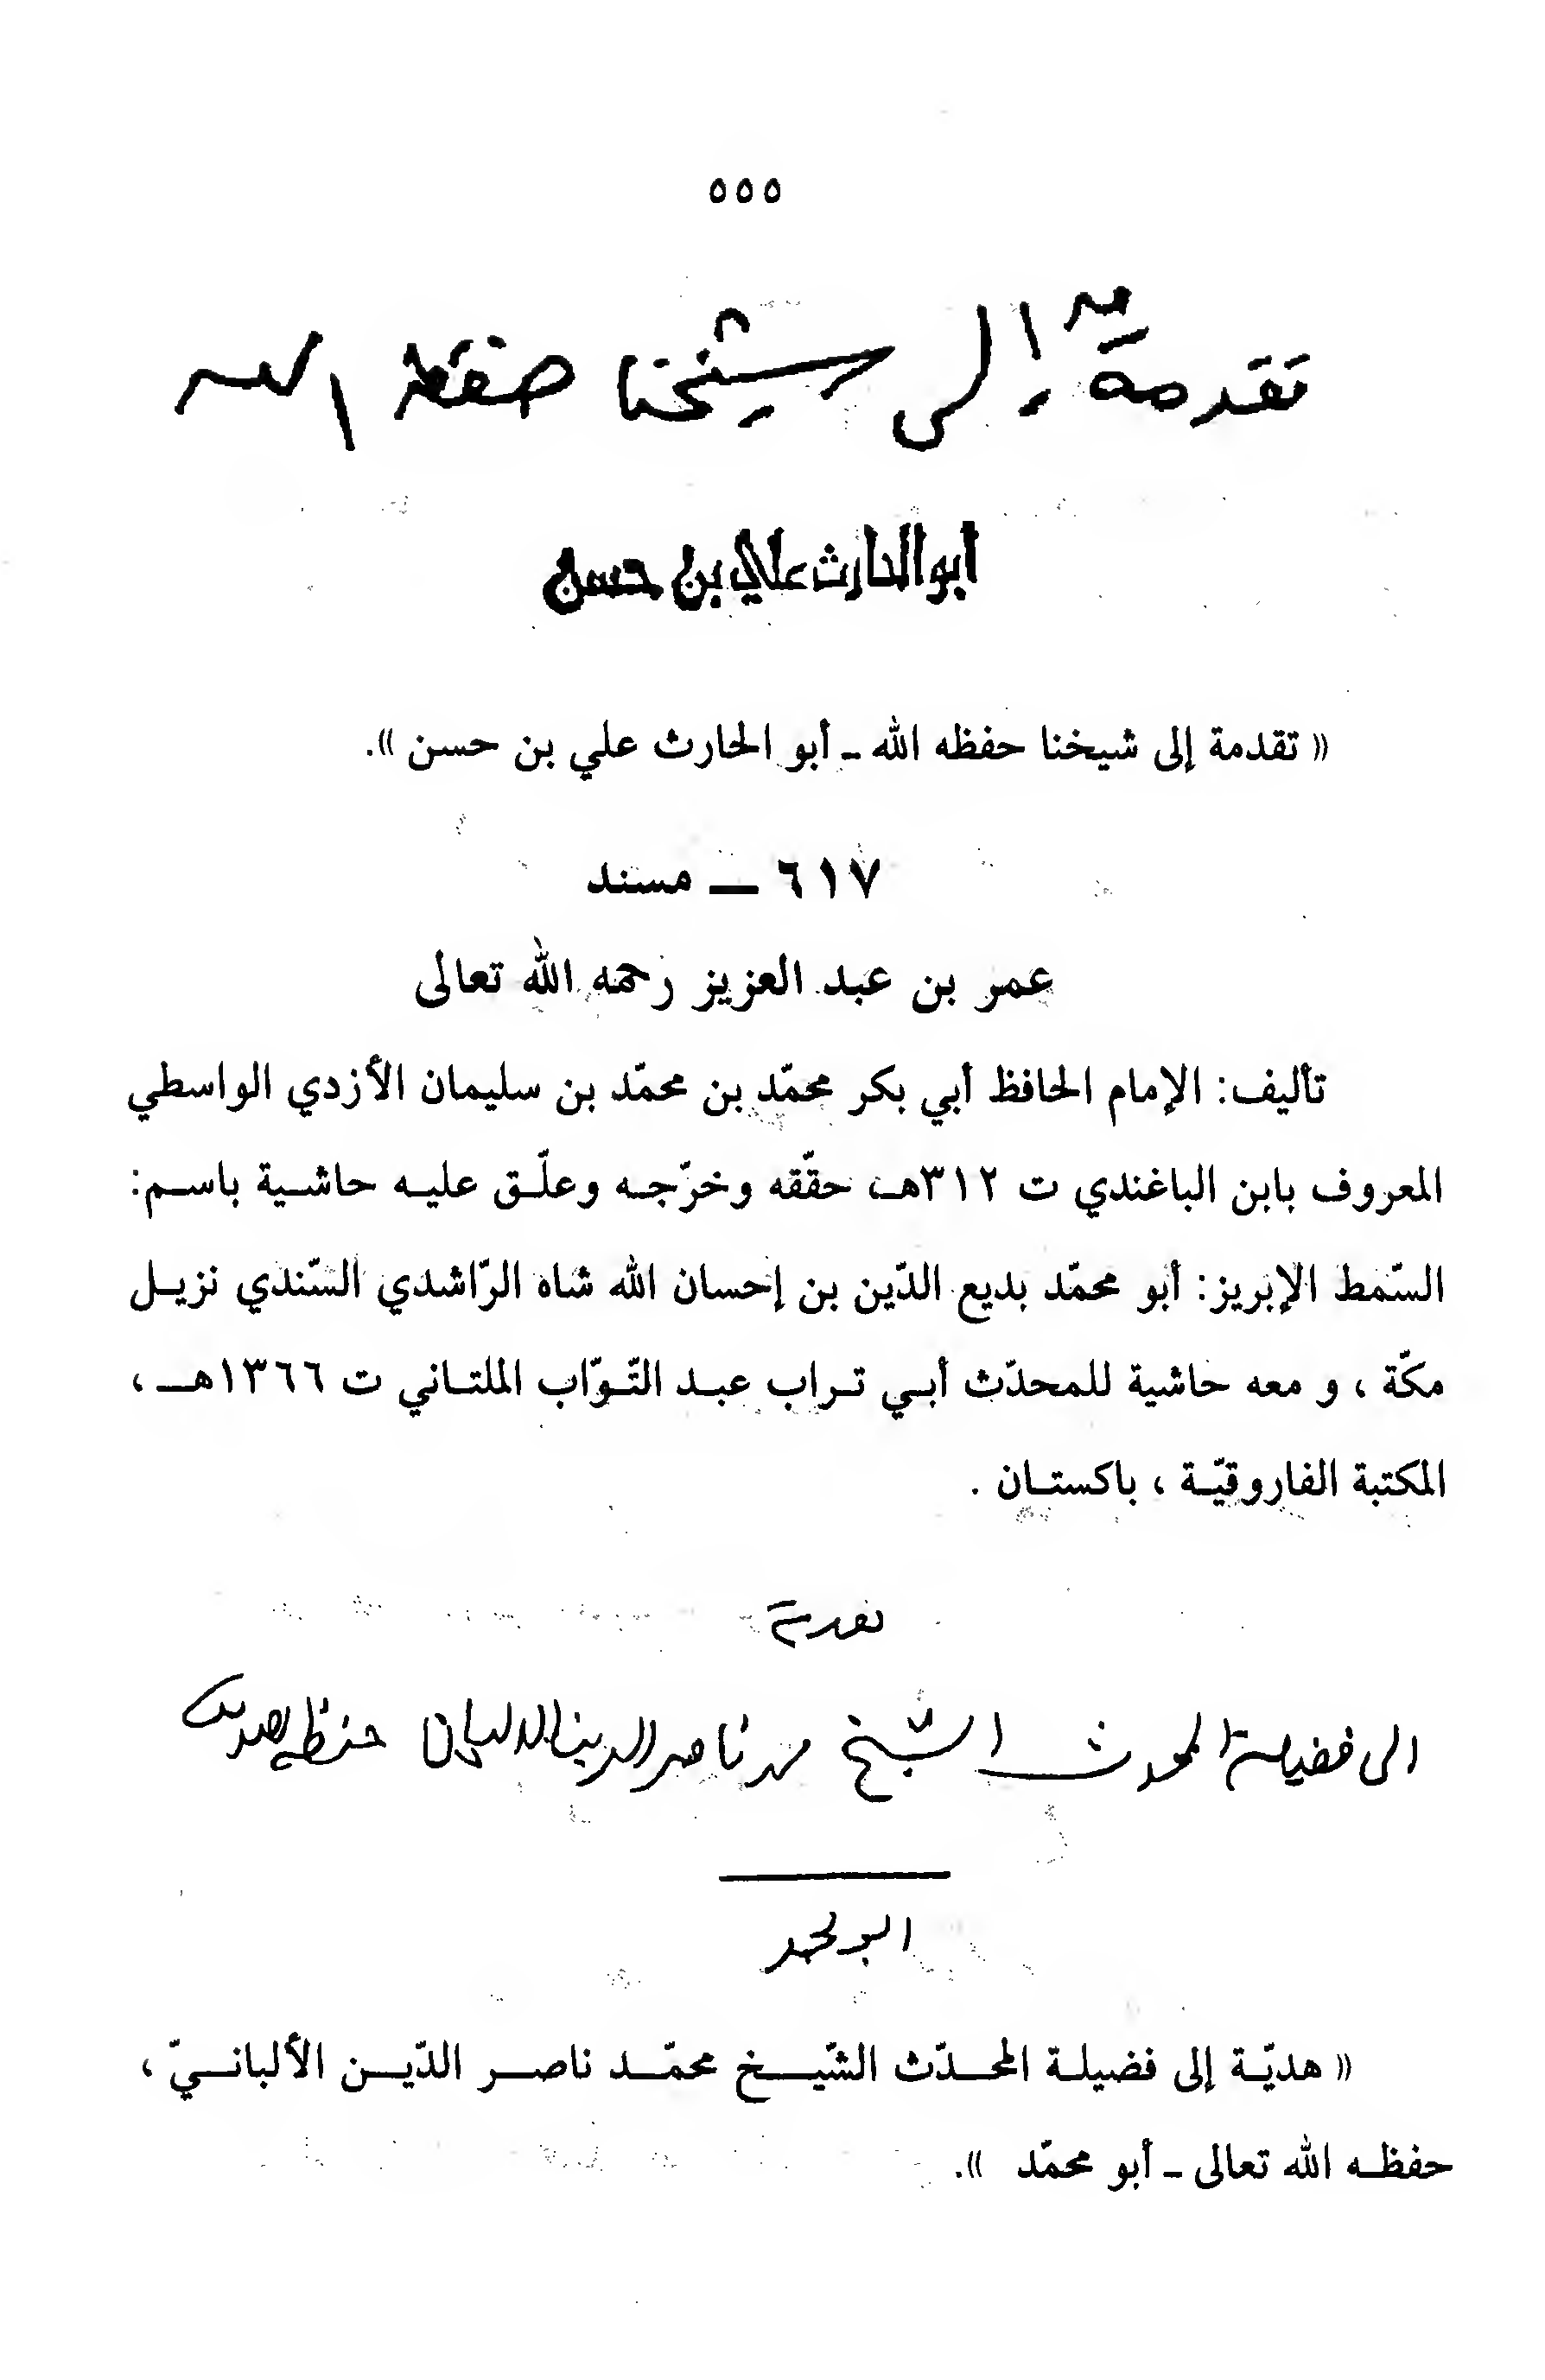 ٥٥٥
تقدمة إلى شيخنا حفظه الله
أبو الحارث علي بن حسن
« تقدمة إلى شيخنا حفظه الله ـ أبو الحارث علي بن حسن ».
٦١٧ ــ مسند
عمر بن عبد العزيز رحمه الله تعالى
تأليف: الإمام الحافظ أبي بكر محمّد بن محمّد بن سليمان الأزدي الواسطي
المعروف بابن الباغندي ت ٣١٢هـ، حقّقه وخرّجـه وعلّـق عليـه حاشـية باسـم:
السّمط الإبريز: أبو محمّد بديع الدّين بن إحسان الله شاه الرّاشدي السّندي نزيـل
مكّة ، و معه حاشية للمحدّث أبـي تـراب عبـد التّـوّاب الملتـاني ت ١٣٦٦هــ ،
المكتبة الفاروقيّـة ، باكستـان .
الى فضيلة المحدث الشيخ محمد ناصر الدين الالباني حفظه
ابو محمد
« هديّـة إلى فضيلـة المحـدّث الشّيـــخ محمّـد ناصـر الدّيـن الألبانـيّ ،
حفظـه الله تعالى ـ أبو محمّد ».